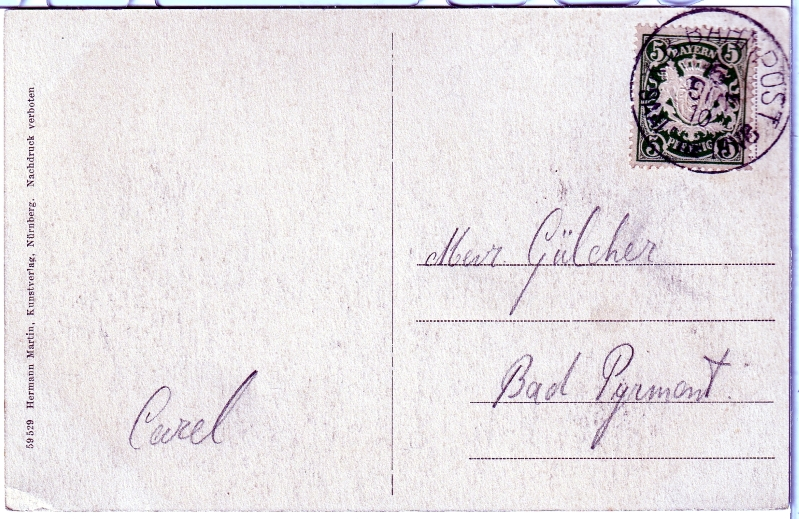 59529 Hermann Martin, Kunstverlag, Nürnberg. Nachdruck verboten
5 BAYERN 5
5 PFENNIG 5
BAHNPOST
10
Mevr. Gülcher
Bad Pyrmont.
Carel